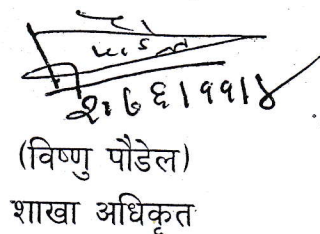 २०७६।११।४
(विष्णु पौडेल)
शाखा अधिकृत